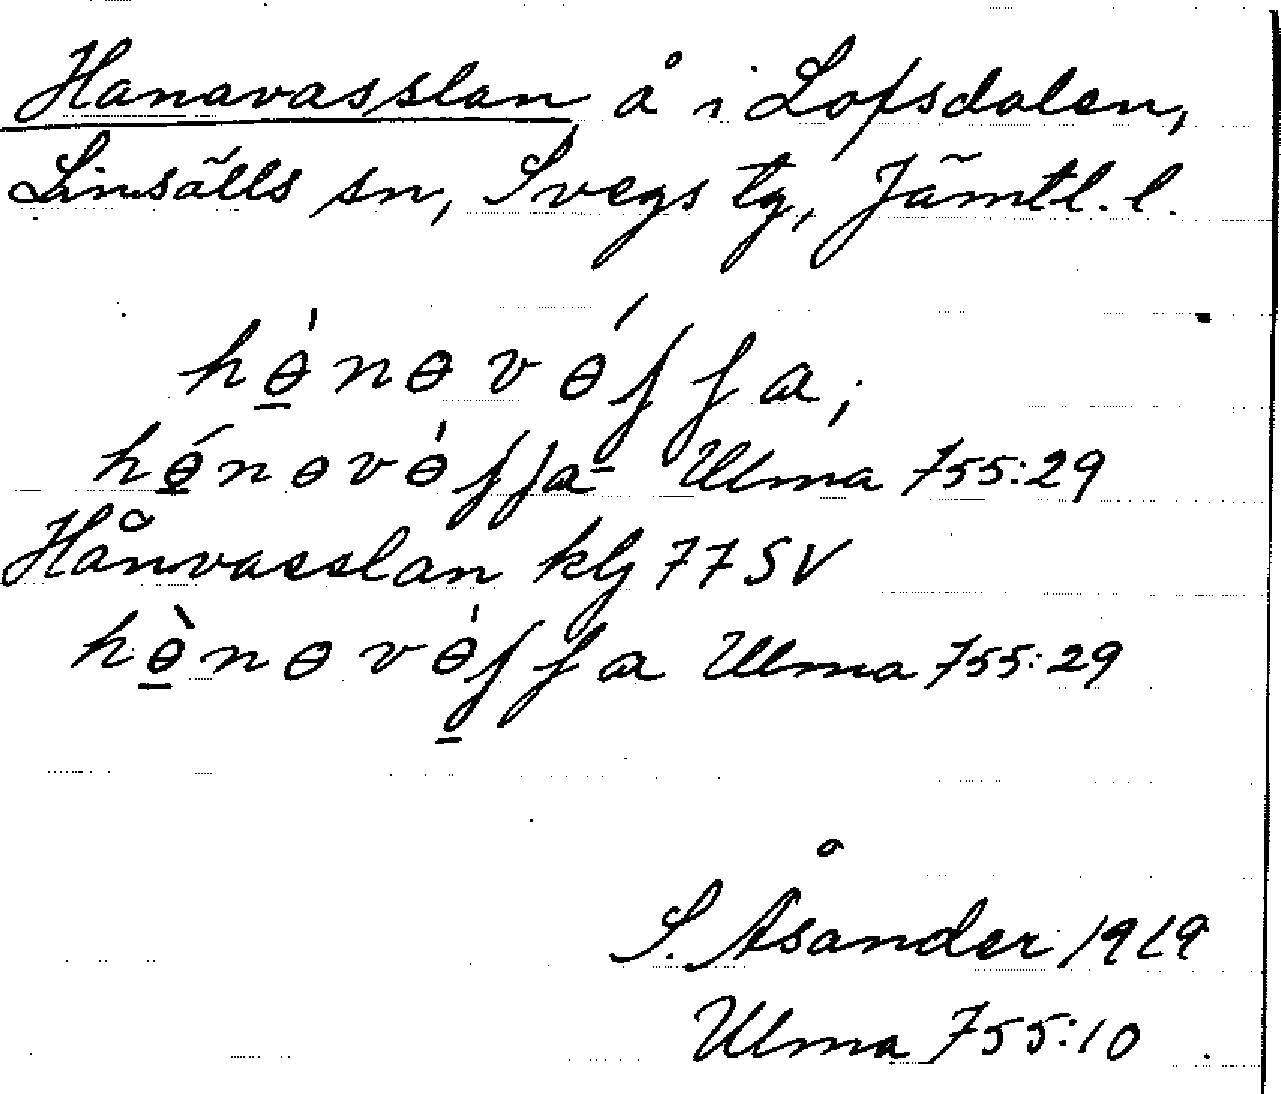 Hanavasslan å i Lofsdalen,
Linsälls sn, Svegs tg, Jämtl. l.
hɵ̠̀nɵvɵ́ʃʃa;
hɵ̠́nɵvɵ̀ʃʃa- Ulma 755:29
Hånvasslan klj 77 SV
hɵ̠̀nɵvɵ̀ʃʃa Ulma 755:29
S. Åsander 1919
Ulma 755:10